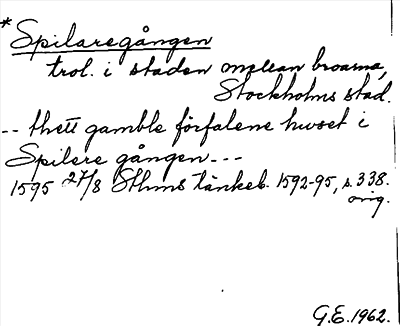 *Spilaregången
trol. i staden mellan broarna,
Stockholms stad.
-- thett gamble förfalene huset i
Spilere gången ---
1595 27/8 Sthms tänkeb. 1592-95, s. 338.
orig.
G.E. 1962.